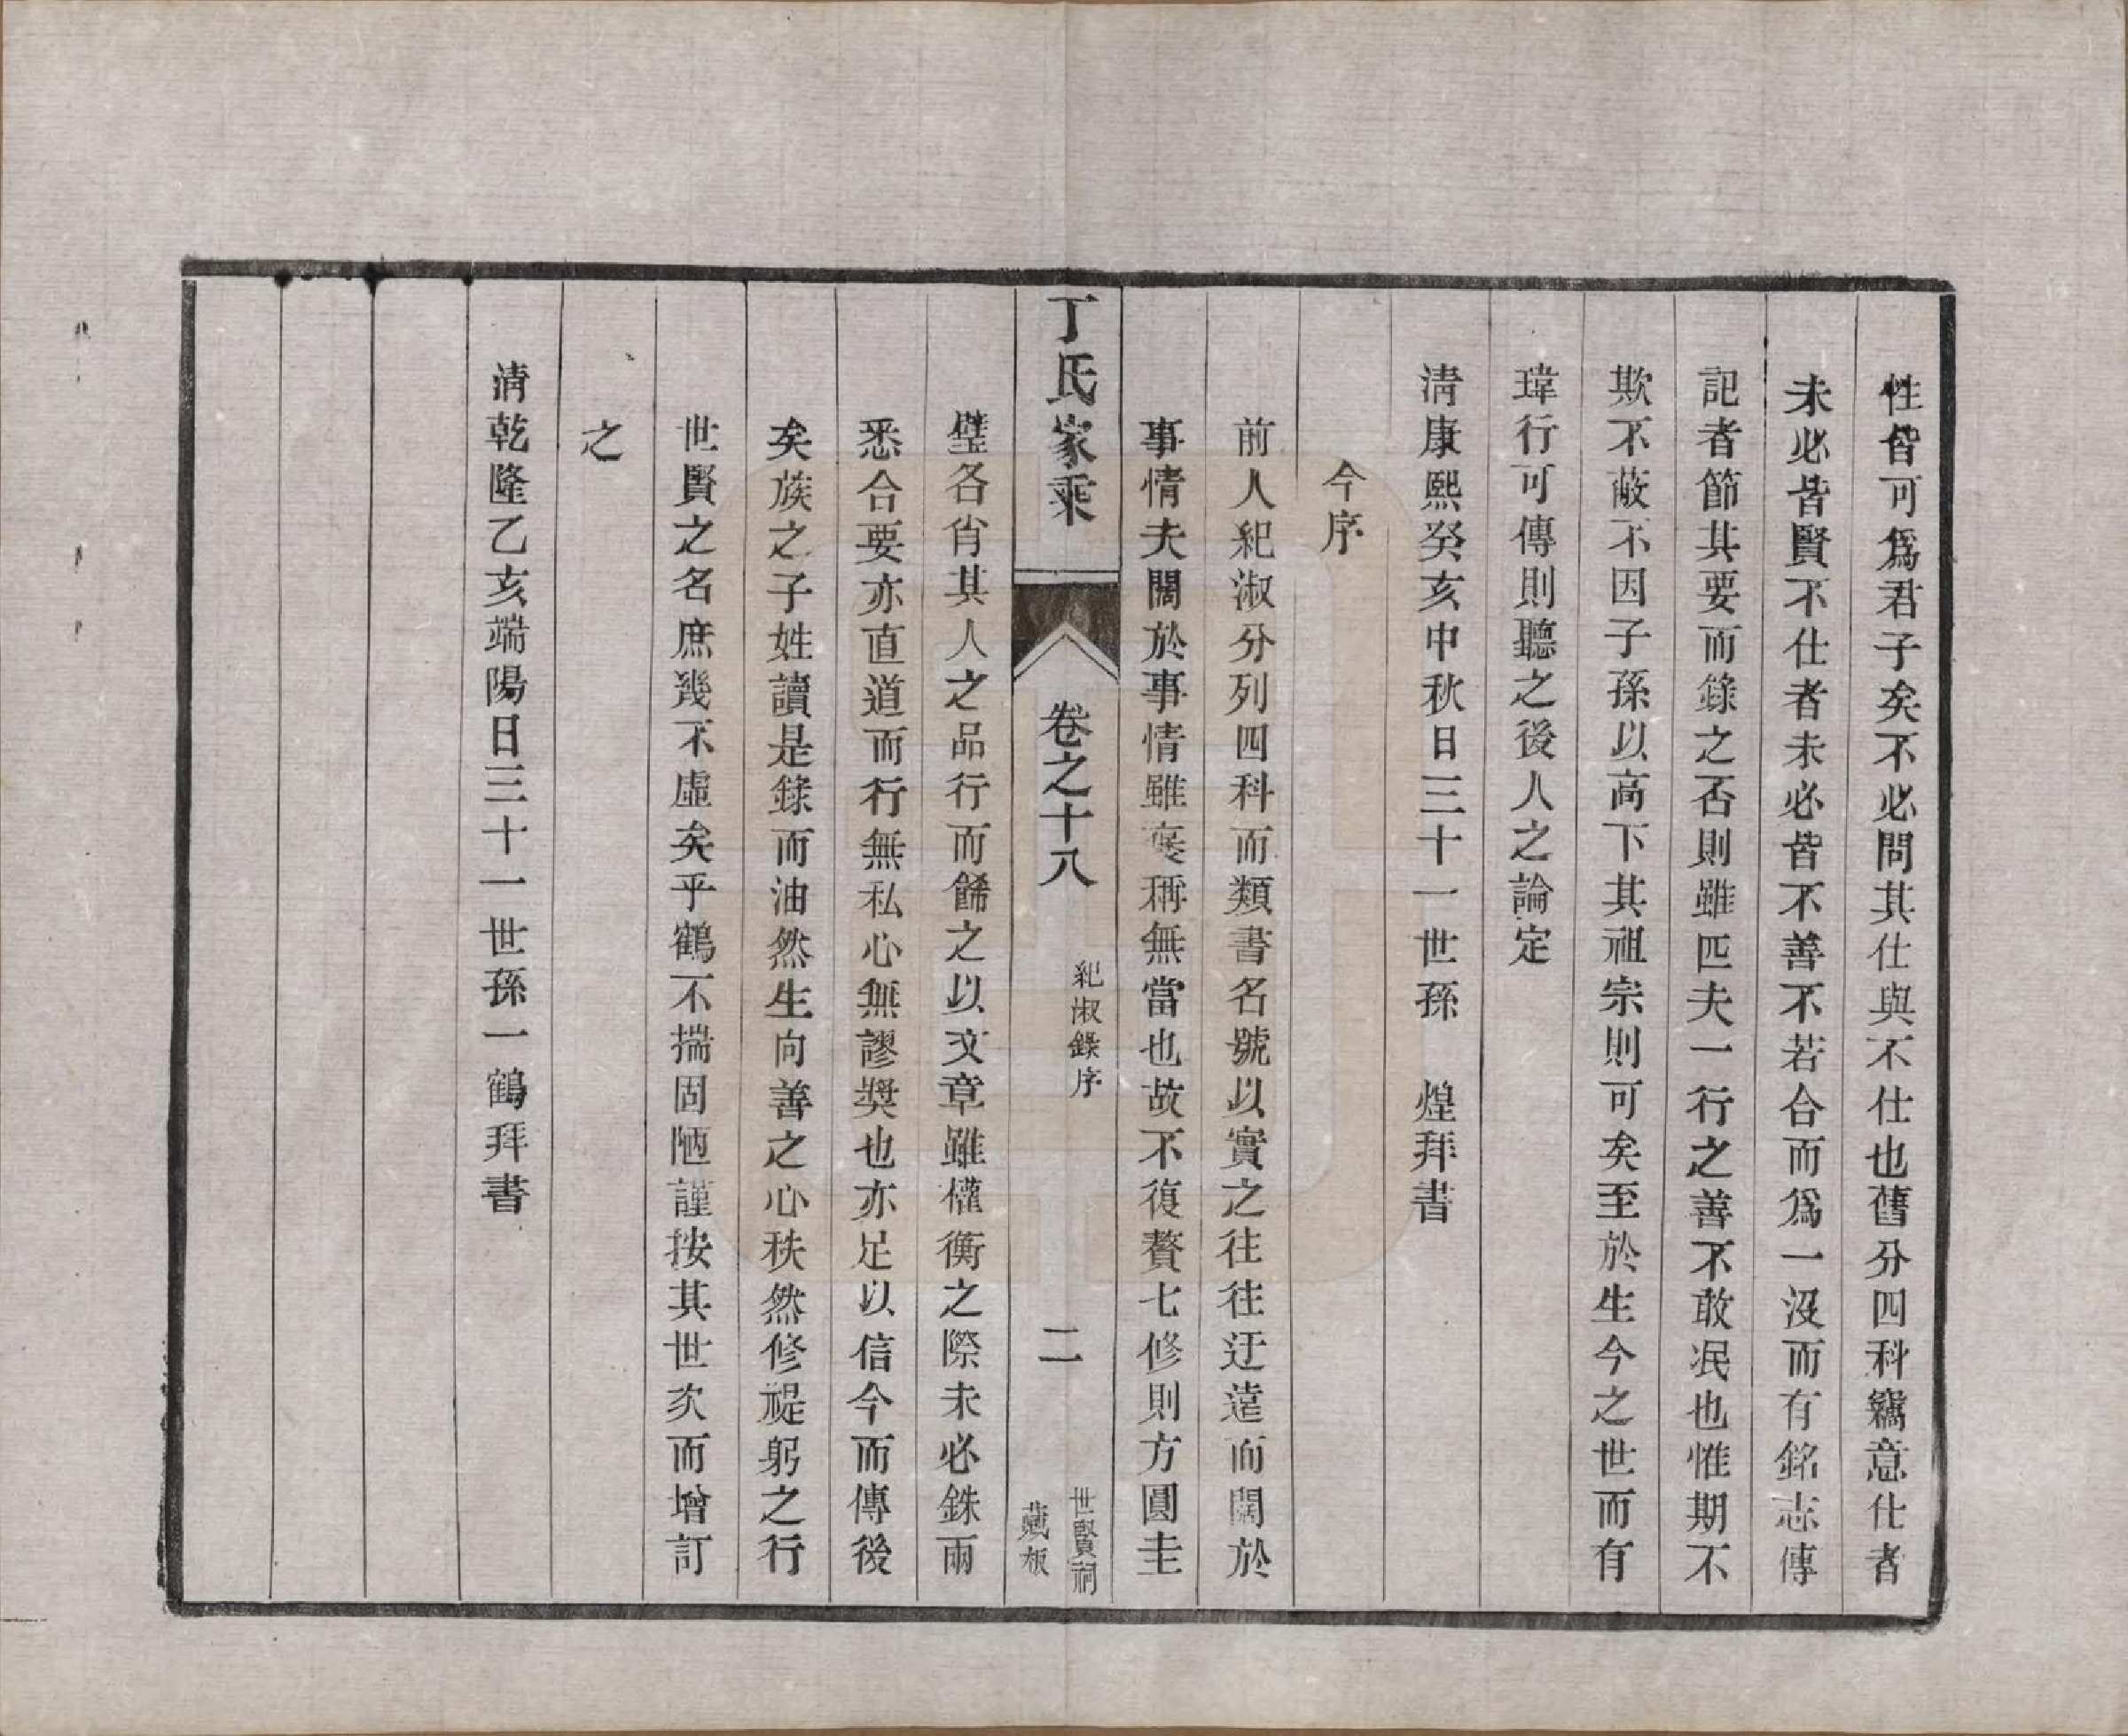 性皆可爲君子矣不必問其仕與不仕也舊分四科竊意仕者
未必皆賢不仕者未必皆不善不若合而爲一沒而有銘志傳
記者節其要而錄之否則雖匹夫一行之善不敢泯也惟期不
欺不蔽不因子孫以高下其祖宗則可矣至於生今之世而有
瑋行可傳則聽之後人之論定
淸康熙癸亥中秋日三十一世孫　煌拜書
今序
前人紀淑分列四科而類書名號以實之往往迂遠而闊於
事情夫闊於事情雖褒稱無當也故不復贅七修則方圓圭
丁氏家乘
卷之十八
紀淑錄序
二
世賢祠
藏板
璧各肖其人之品行而餙之以文章雖權衡之際未必銖兩
悉合要亦直道而行無私心無謬獎也亦足以信今而傳後
矣族之子姓讀是錄而油然生向善之心秩然修禔躬之行
世賢之名庶幾不虛矣乎鶴不揣固陋謹按其世次而增訂
之
淸乾隆乙亥端陽日三十一世孫一鶴拜書